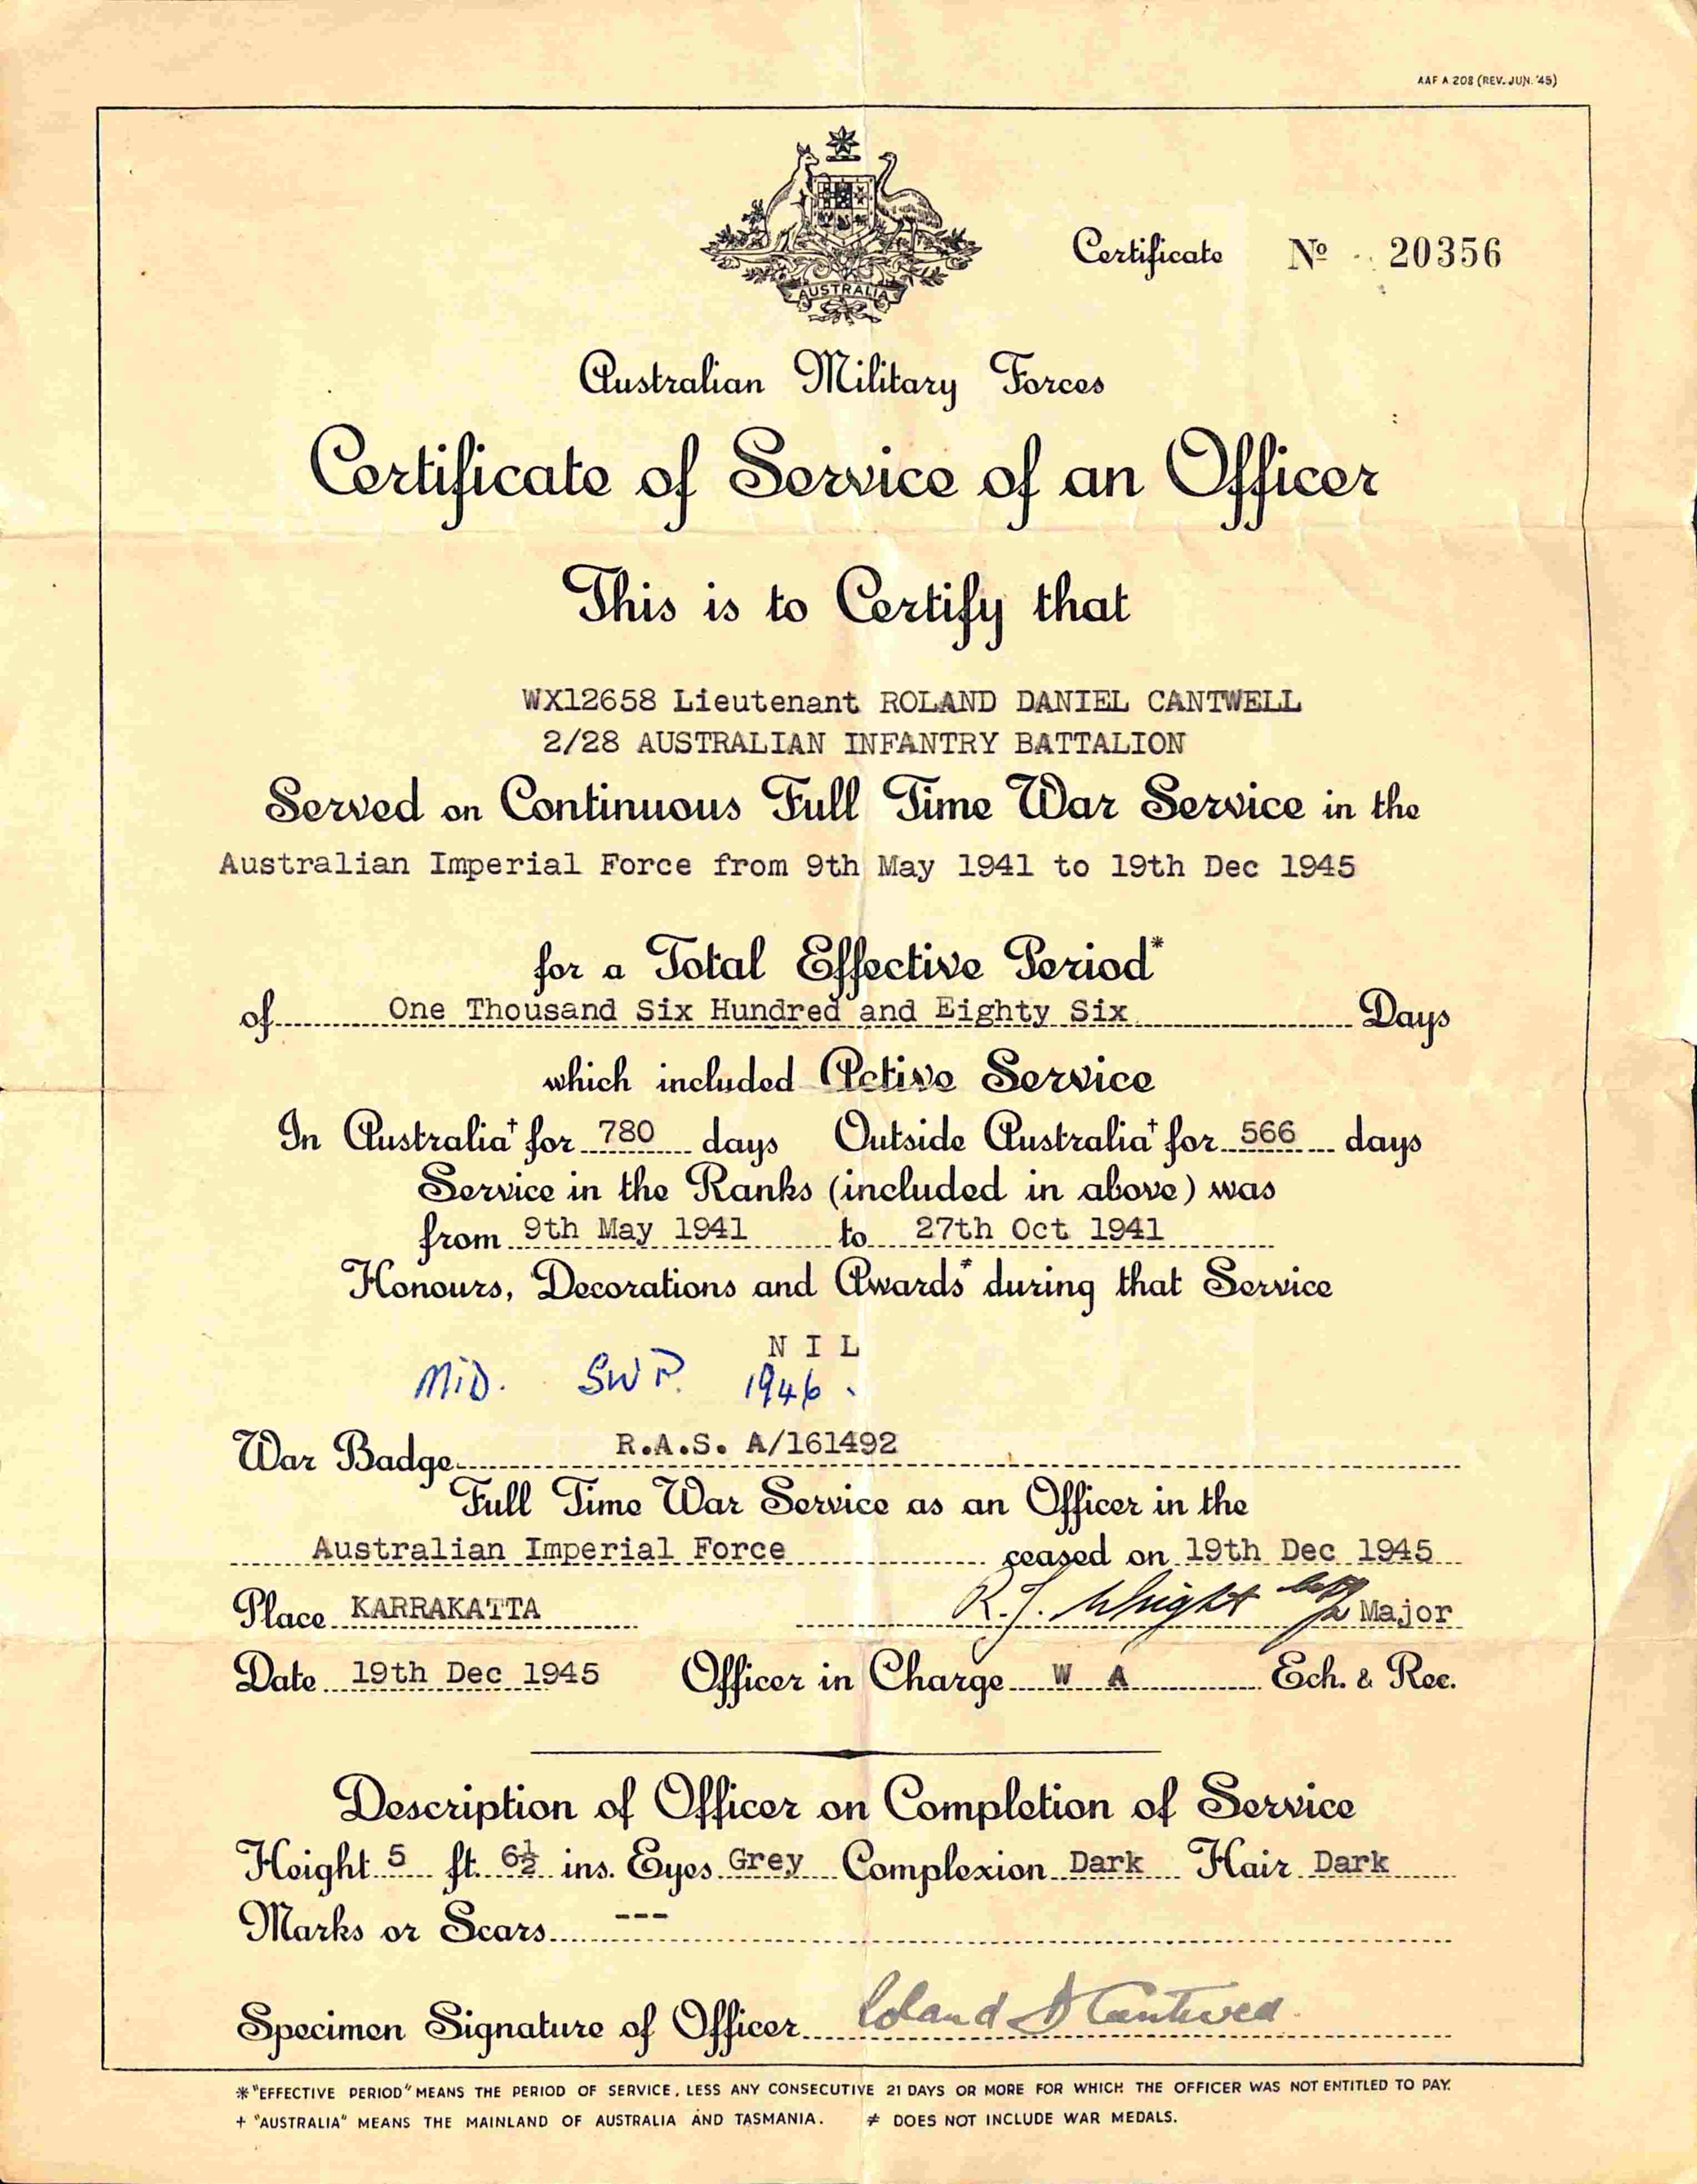 AAF A 208 (REV. JUN. '45)
AUSTRALIA
Certificate Nº 20356
Australian Military Forces
Certificate of Service of an Officer
This is to Certify that
WX12658 Lieutenant ROLAND DANIEL CANTWELL
2/28 AUSTRALIAN INFANTRY BATTALION
Served on Continuous Full Time War Service in the
Australian Imperial Force from 9th May 1941 to 19th Dec 1945
for a Total Effective Period*
of One Thousand Six Hundred and Eighty Six Days
which included Active Service
In Australia† for 780 days Outside Australia† for 566 days
Service in the Ranks (included in above) was
from 9th May 1941 to 27th Oct 1941
Honours, Decorations and Awards≠ during that Service
N I L
MiD. SWP. 1946.
War Badge R.A.S. A/161492
Full Time War Service as an Officer in the
Australian Imperial Force ceased on 19th Dec 1945
Place KARRAKATTA R.J. Wright Major
Date 19th Dec 1945 Officer in Charge W A Ech. & Rec.
Description of Officer on Completion of Service
Height 5 ft. 6½ ins. Eyes Grey Complexion Dark Hair Dark
Marks or Scars ---
Specimen Signature of Officer Roland D Cantwell
* "EFFECTIVE PERIOD" MEANS THE PERIOD OF SERVICE, LESS ANY CONSECUTIVE 21 DAYS OR MORE FOR WHICH THE OFFICER WAS NOT ENTITLED TO PAY.
+ "AUSTRALIA" MEANS THE MAINLAND OF AUSTRALIA AND TASMANIA. ≠ DOES NOT INCLUDE WAR MEDALS.